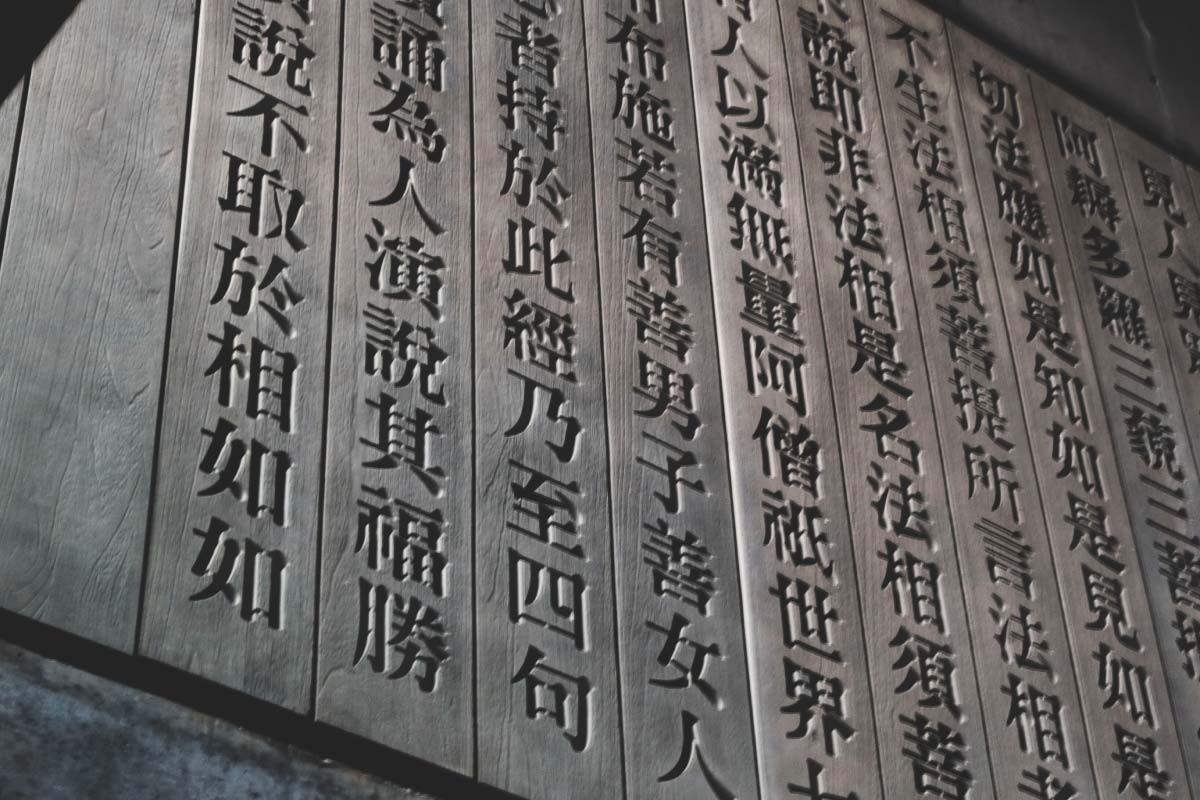 見人見
阿耨多羅三藐三菩提
切法應如是知如是見如是
不生法相須菩提所言法相者
說即非法相是名法相須菩
有人以滿無量阿僧祇世界七
布施若有善男子善女人
者持於此經乃至四句
誦為人演說其福勝
說不取於相如如